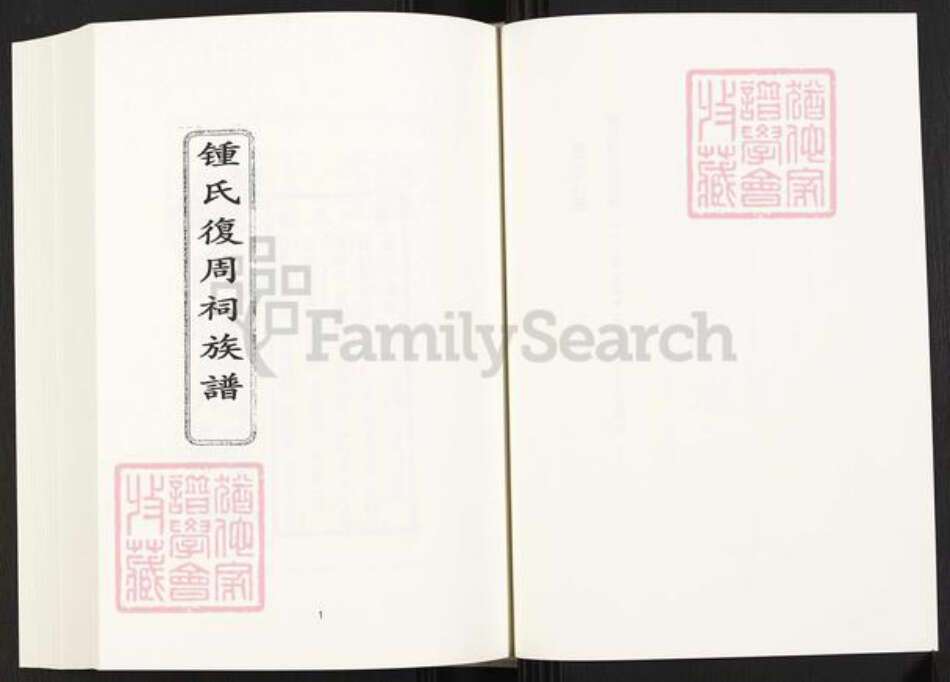 锺氏復周祠族譜
猶他家
譜學會
收藏
1
猶他家
譜學會
收藏
FamilySearch